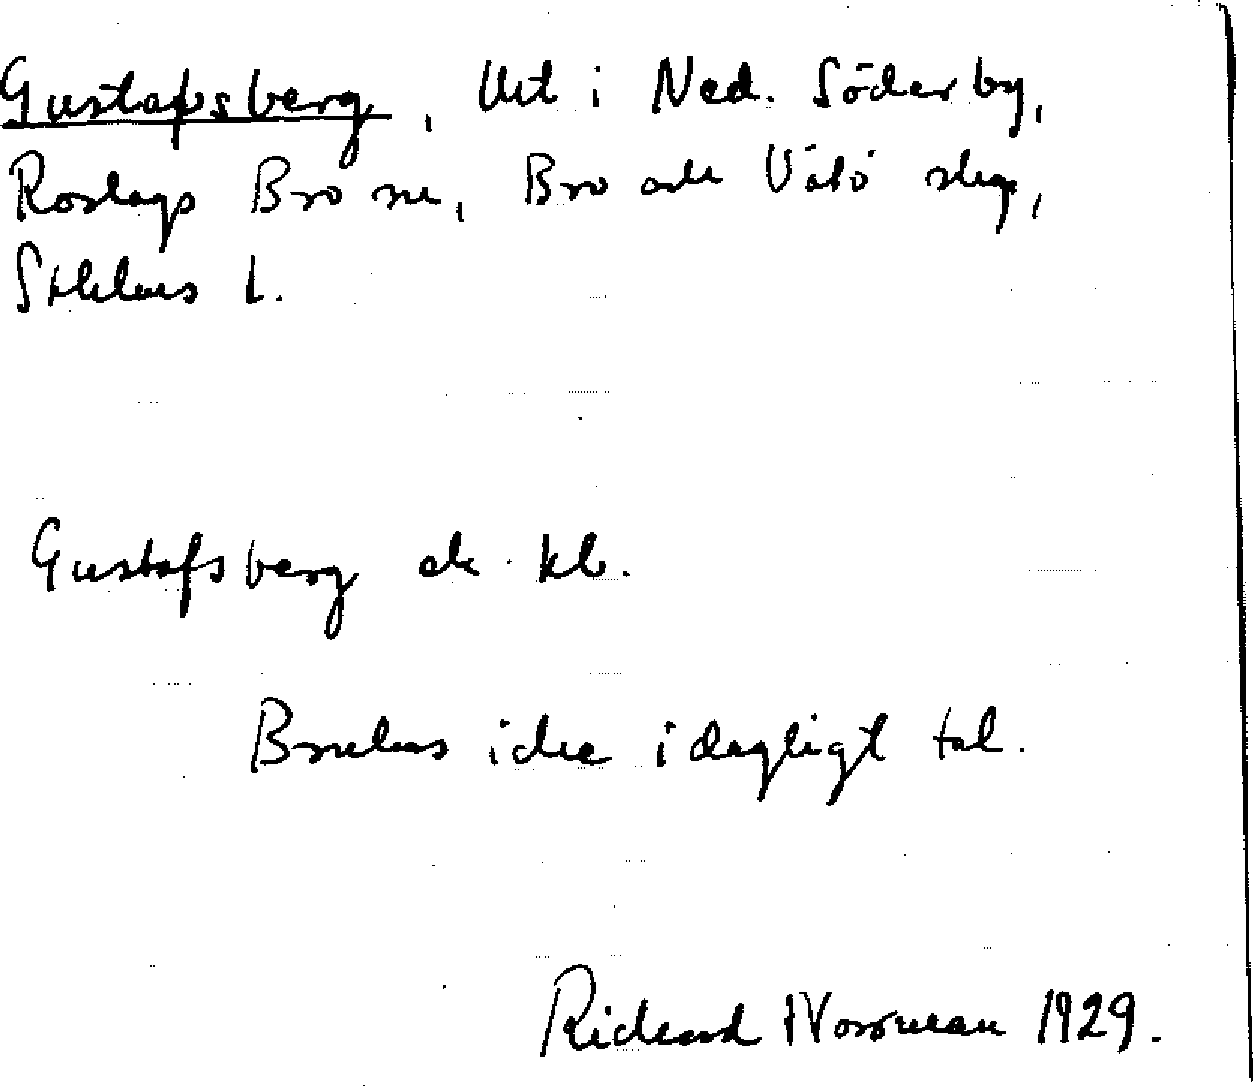 Gustafsberg, Utt i Ned. Söderby,
Roslags Bro sn, Bro och Vätö skg,
Sthlms l.
Gustafsberg ek. kb.
Brukas icke i dagligt tal.
Rickard Norrman 1929.